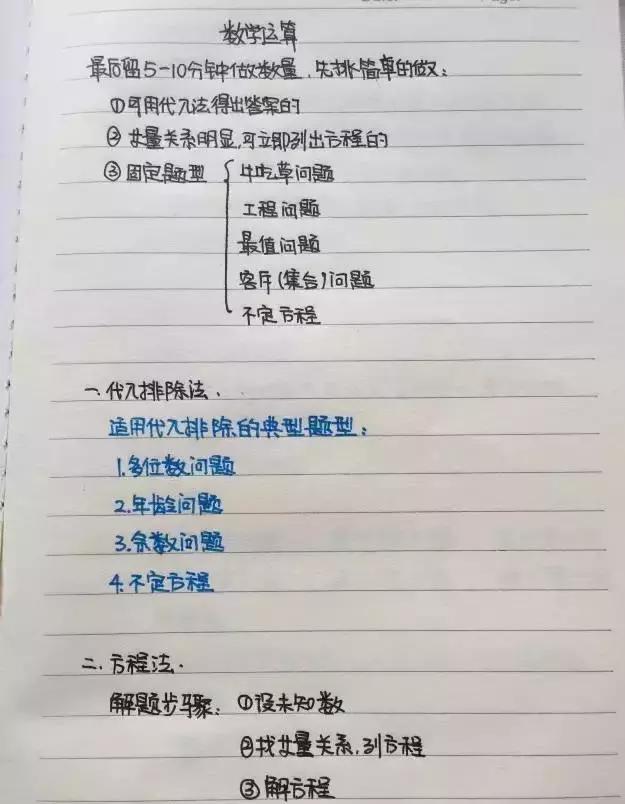 数学运算
最后留5-10分钟做数量,先挑简单的做:
①可用代入法得出答案的
②等量关系明显,可立即列出方程的
③固定题型 { 牛吃草问题
工程问题
最值问题
容斥(集合)问题
不定方程
一.代入排除法.
适用代入排除的典型题型:
1.多位数问题
2.年龄问题
3.余数问题
4.不定方程
二.方程法.
解题步骤: ①设未知数
②找等量关系,列方程
③解方程